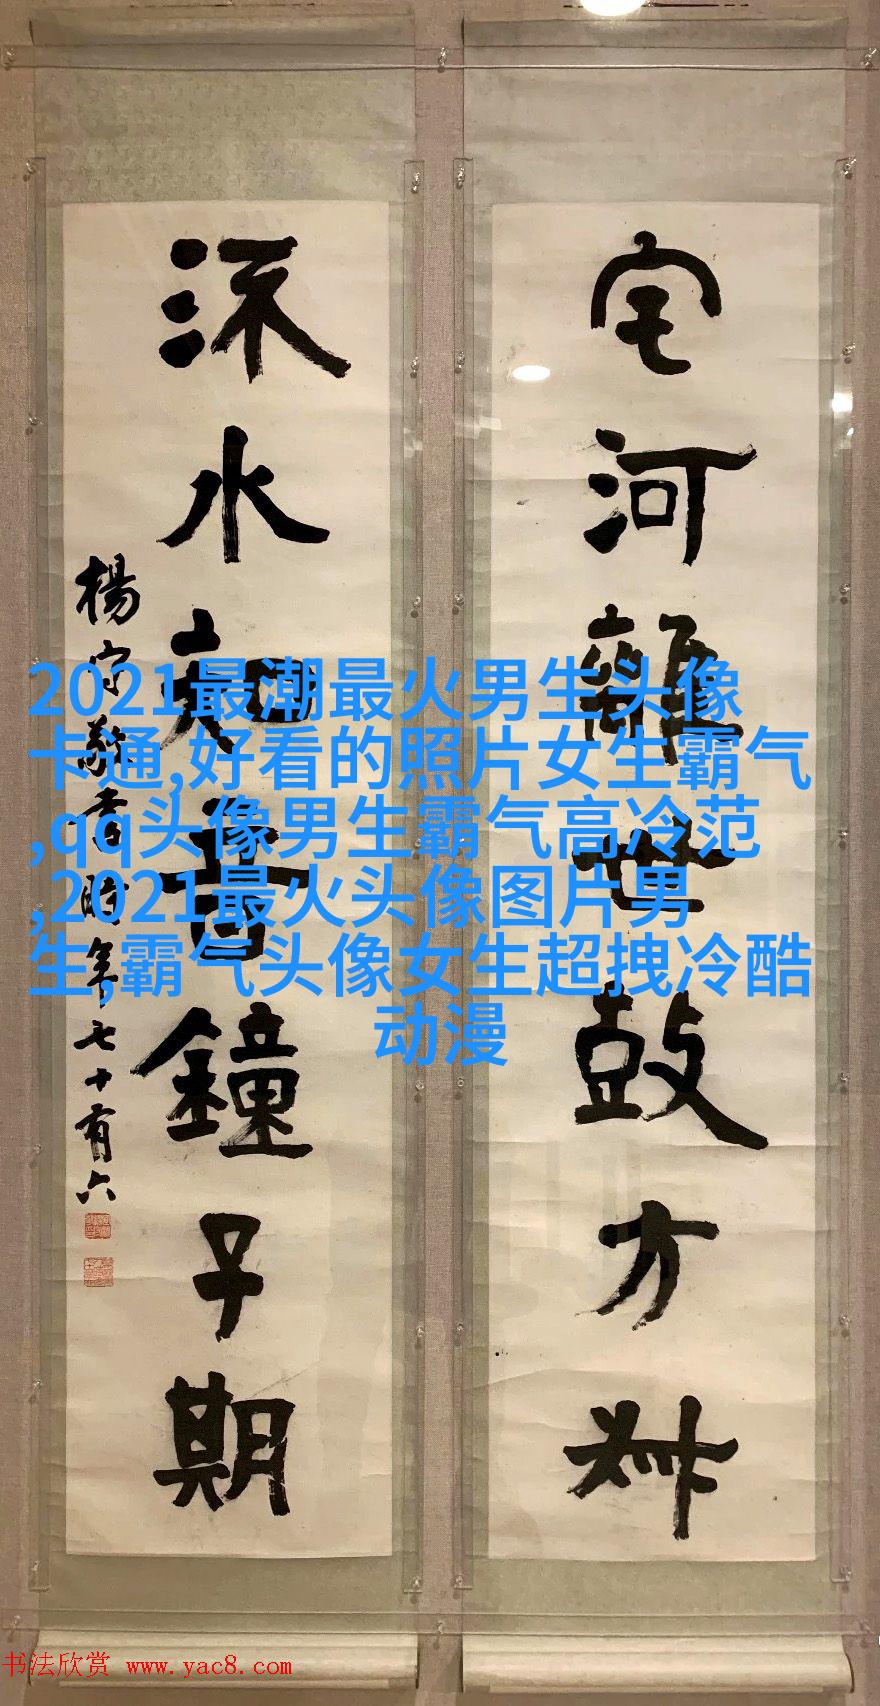 宅河離世鼓方叔
流水知音鐘子期
楊守敬書時年七十有六
2021最潮最火男生头像
卡通,好看的照片女生霸气
,qq头像男生霸气高冷范
,2021最火头像图片男
生,霸气头像女生超拽冷酷
动漫
书法欣赏 www.yac8.com